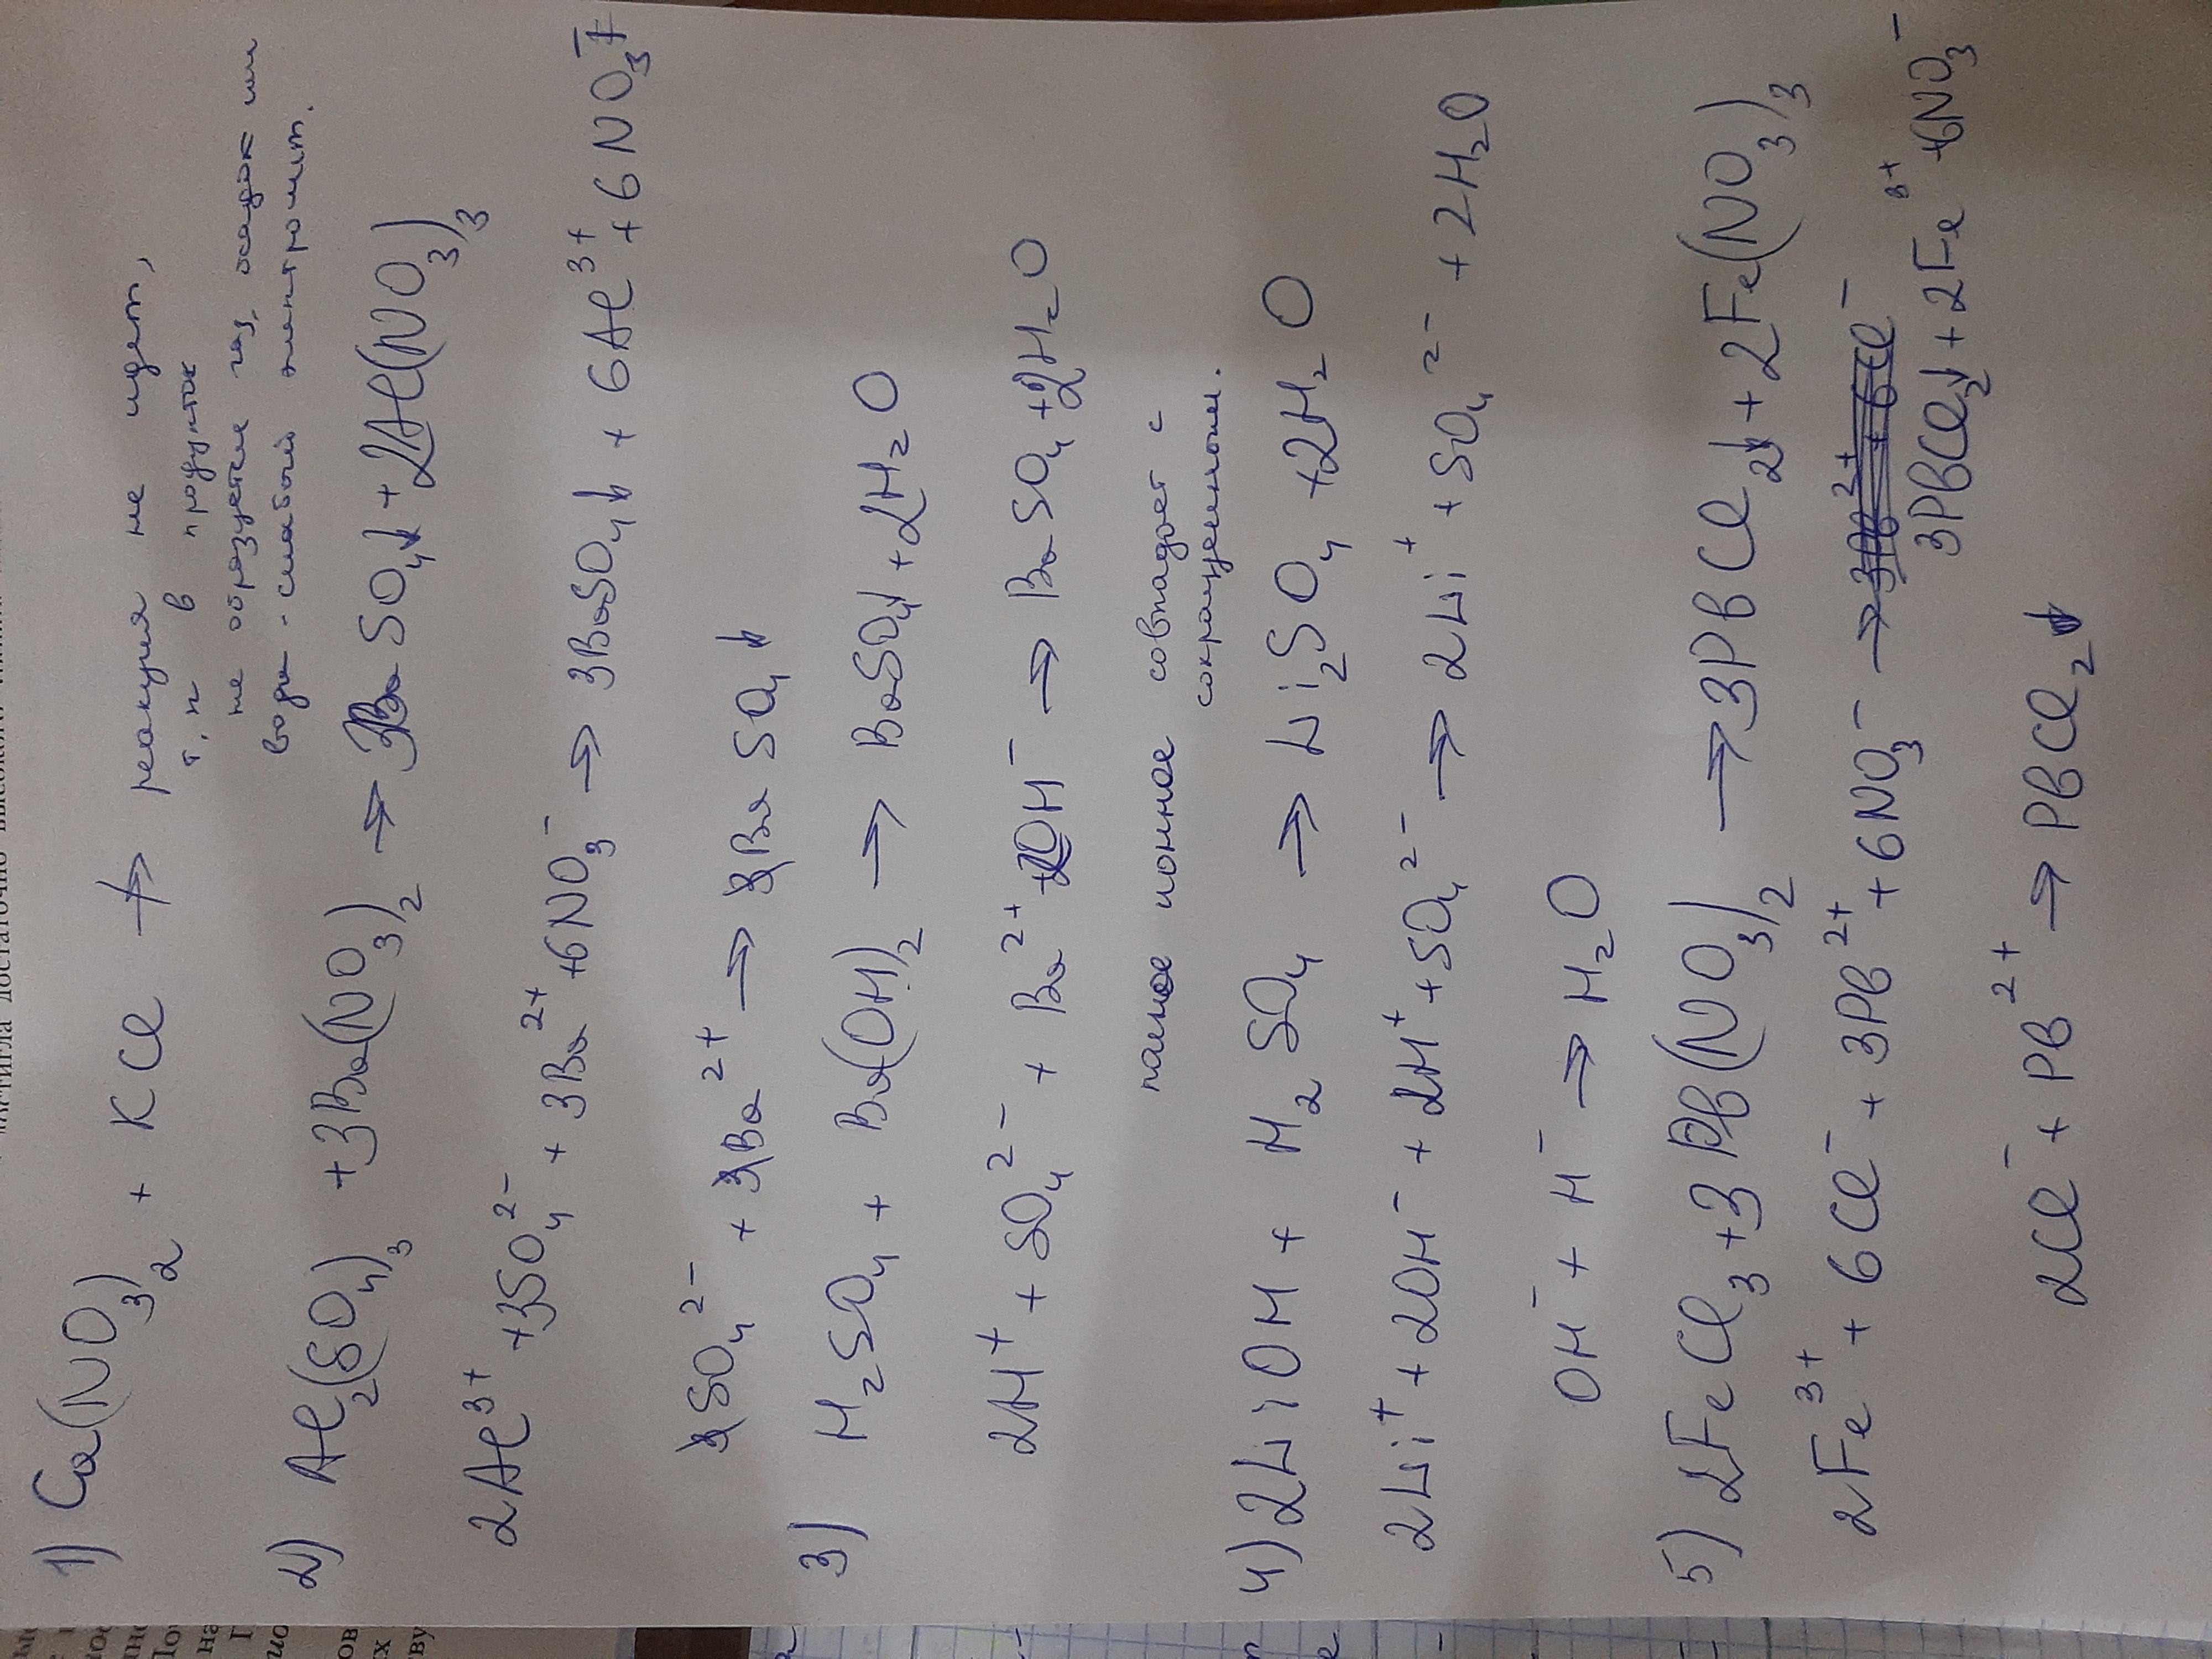 1) Ca(NO₃)₂ + KCl ↛ реакция не идет,
т, к в продуктах
не образуется газ, осадок или
вода - слабый электролит.
2) Al₂(SO₄)₃ + 3Ba(NO₃)₂ → 3BaSO₄↓ + 2Al(NO₃)₃
2Al³⁺ + 3SO₄²⁻ + 3Ba²⁺ + 6NO₃⁻ → 3BaSO₄↓ + 6Al³⁺ + 6NO₃⁻
SO₄²⁻ + Ba²⁺ → BaSO₄↓
3) H₂SO₄ + Ba(OH)₂ → BaSO₄↓ + 2H₂O
2H⁺ + SO₄²⁻ + Ba²⁺ + 2OH⁻ → BaSO₄ + 2H₂O
полное ионное совпадает с
сокращенным.
4) 2LiOH + H₂SO₄ → Li₂SO₄ + 2H₂O
2Li⁺ + 2OH⁻ + 2H⁺ + SO₄²⁻ → 2Li⁺ + SO₄²⁻ + 2H₂O
OH⁻ + H⁻ → H₂O
5) 2FeCl₃ + 3Pb(NO₃)₂ → 3PbCl₂↓ + 2Fe(NO₃)₃
2Fe³⁺ + 6Cl⁻ + 3Pb²⁺ + 6NO₃⁻ →
3PbCl₂↓ + 2Fe³⁺ + 6NO₃⁻
2Cl⁻ + Pb²⁺ → PbCl₂↓